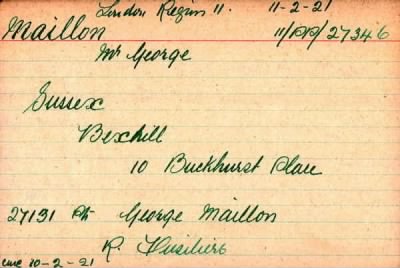 London Region 11. 11-2-21
Maillon 11/DP/27346
Mr George
Sussex
Bexhill
10 Buckhurst Place
27131 Pte George Maillon
R. Fusiliers
10-2-21